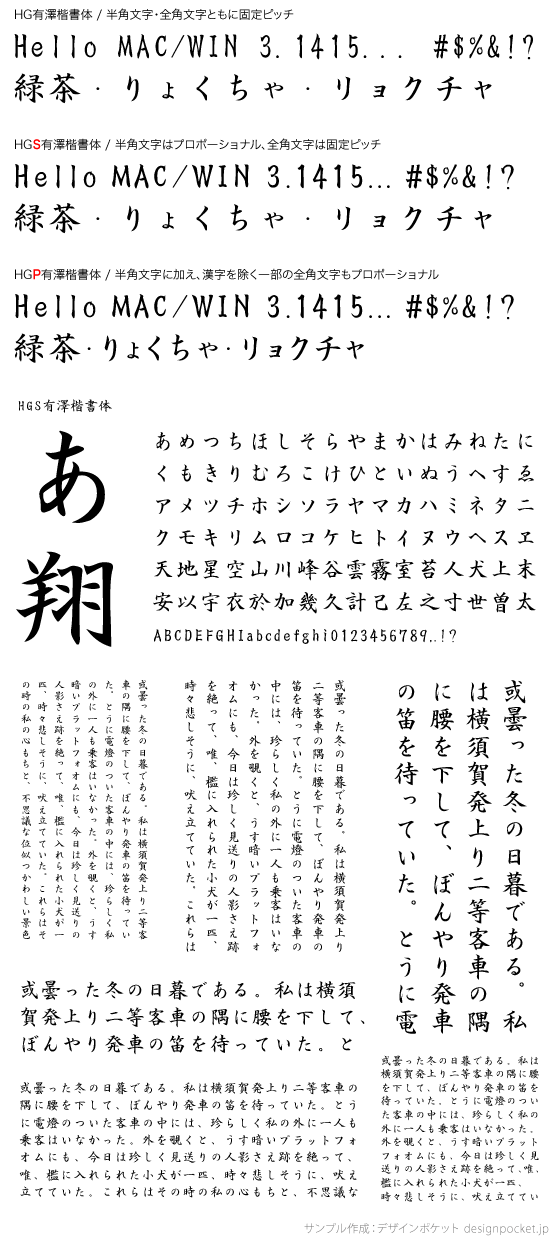 HG有澤楷書体 / 半角文字・全角文字ともに固定ピッチ
Hello MAC/WIN 3.1415... #$%&!?
緑茶・りょくちゃ・リョクチャ
HGS有澤楷書体 / 半角文字はプロポーショナル、全角文字は固定ピッチ
Hello MAC/WIN 3.1415... #$%&!?
緑茶・りょくちゃ・リョクチャ
HGP有澤楷書体 / 半角文字に加え、漢字を除く一部の全角文字もプロポーショナル
Hello MAC/WIN 3.1415... #$%&!?
緑茶・りょくちゃ・リョクチャ
HGS有澤楷書体
あ
翔
あめつちほしそらやまかはみねたに
くもきりむろこけひといぬうへすゑ
アメツチホシソラヤマカハミネタニ
クモキリムロコケヒトイヌウヘスヱ
天地星空山川峰谷雲霧室苔人犬上末
安以宇衣於加幾久計己左之寸世曽太
ABCDEFGHIabcdefghi0123456789..!?
或曇った冬の日暮である。私は横須賀発上り二等客
車の隅に腰を下して、ぼんやり発車の笛を待ってい
た。とうに電燈のついた客車の中には、珍らしく私
の外に一人も乗客はいなかった。外を覗くと、うす
暗いプラットフォオムにも、今日は珍しく見送りの
人影さえ跡を絶って、唯、檻に入れられた小犬が一
匹、時々悲しそうに、吠え立てていた。これらはそ
の時の私の心もちと、不思議な位似つかわしい景色
或曇った冬の日暮である。私は横須賀発上り
二等客車の隅に腰を下して、ぼんやり発車の
笛を待っていた。とうに電燈のついた客車の
中には、珍らしく私の外に一人も乗客はいな
かった。外を覗くと、うす暗いプラットフォ
オムにも、今日は珍しく見送りの人影さえ跡
を絶って、唯、檻に入れられた小犬が一匹、
時々悲しそうに、吠え立てていた。これらは
或曇った冬の日暮である。私
は横須賀発上り二等客車の隅
に腰を下して、ぼんやり発車
の笛を待っていた。とうに電
或曇った冬の日暮である。私は横須
賀発上り二等客車の隅に腰を下して、
ぼんやり発車の笛を待っていた。と
或曇った冬の日暮である。私は横須賀発上り二等客車の
隅に腰を下して、ぼんやり発車の笛を待っていた。とう
に電燈のついた客車の中には、珍らしく私の外に一人も
乗客はいなかった。外を覗くと、うす暗いプラットフォ
オムにも、今日は珍しく見送りの人影さえ跡を絶って、
唯、檻に入れられた小犬が一匹、時々悲しそうに、吠え
立てていた。これらはその時の私の心もちと、不思議な
或曇った冬の日暮である。私は
横須賀発上り二等客車の隅に腰
を下して、ぼんやり発車の笛を待
っていた。とうに電燈のついた
た客車の中には、珍らしく私の
外に一人も乗客はいなかった。
外を覗くと、うす暗いプラット
フォオムにも、今日は珍しく見
送りの人影さえ跡を絶って、唯、
檻に入れられた小犬が一匹、
時々悲しそうに、吠え立ててい
サンプル作成：デザインポケット designpocket.jp